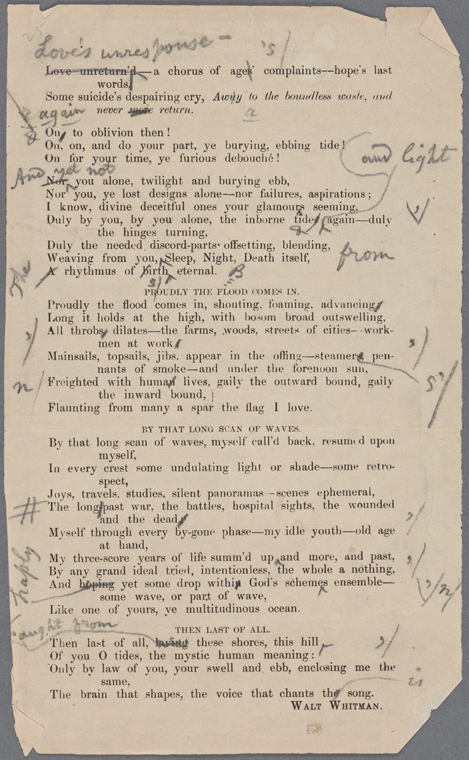 Love's unresponse—
's/
Love unreturn'd, a chorus of ages' complaints—hope's last
words,
Some suicide's despairing cry, Away to the boundless waste, and
again
never more return.
a
On, to oblivion then!
On, on, and do your part, ye burying, ebbing tide!
On for your time, ye furious debouché!
and light
And yet not
Not you alone, twilight and burying ebb,
Nor you, ye lost designs alone—nor failures, aspirations;
I know, divine deceitful ones your glamours seeming,
Duly by you, by you alone, the inborne tides again—duly
the hinges turning,
Duly the needed discord-parts offsetting, blending,
Weaving from you, Sleep, Night, Death itself,
from
The
A rhythmus of birth eternal.
B
PROUDLY THE FLOOD COMES IN.
Proudly the flood comes in, shouting, foaming, advancing,
Long it holds at the high, with bosom broad outswelling,
All throbs, dilates—the farms, woods, streets of cities—work-
men at work,
Mainsails, topsails, jibs, appear in the offing—steamers pen-
nants of smoke—and under the forenoon sun,
n/
Freighted with human lives, gaily the outward bound, gaily
the inward bound,
s'/
Flaunting from many a spar the flag I love.
BY THAT LONG SCAN OF WAVES.
By that long scan of waves, myself call'd back, resumed upon
myself,
In every crest some undulating light or shade—some retro-
spect,
Joys, travels, studies, silent panoramas—scenes ephemeral,
#
The long past war, the battles, hospital sights, the wounded
and the dead,
Myself through every by-gone phase—my idle youth—old age
at hand,
My three-score years of life summ'd up and more, and past,
By any grand ideal tried, intentionless, the whole a nothing,
haply
And hoping yet some drop within God's schemes ensemble—
some wave, or part of wave,
Like one of yours, ye multitudinous ocean.
aught from
THEN LAST OF ALL.
Then last of all, having these shores, this hill
Of you O tides, the mystic human meaning:
Only by law of you, your swell and ebb, enclosing me the
same,
is
The brain that shapes, the voice that chants the song.
WALT WHITMAN.